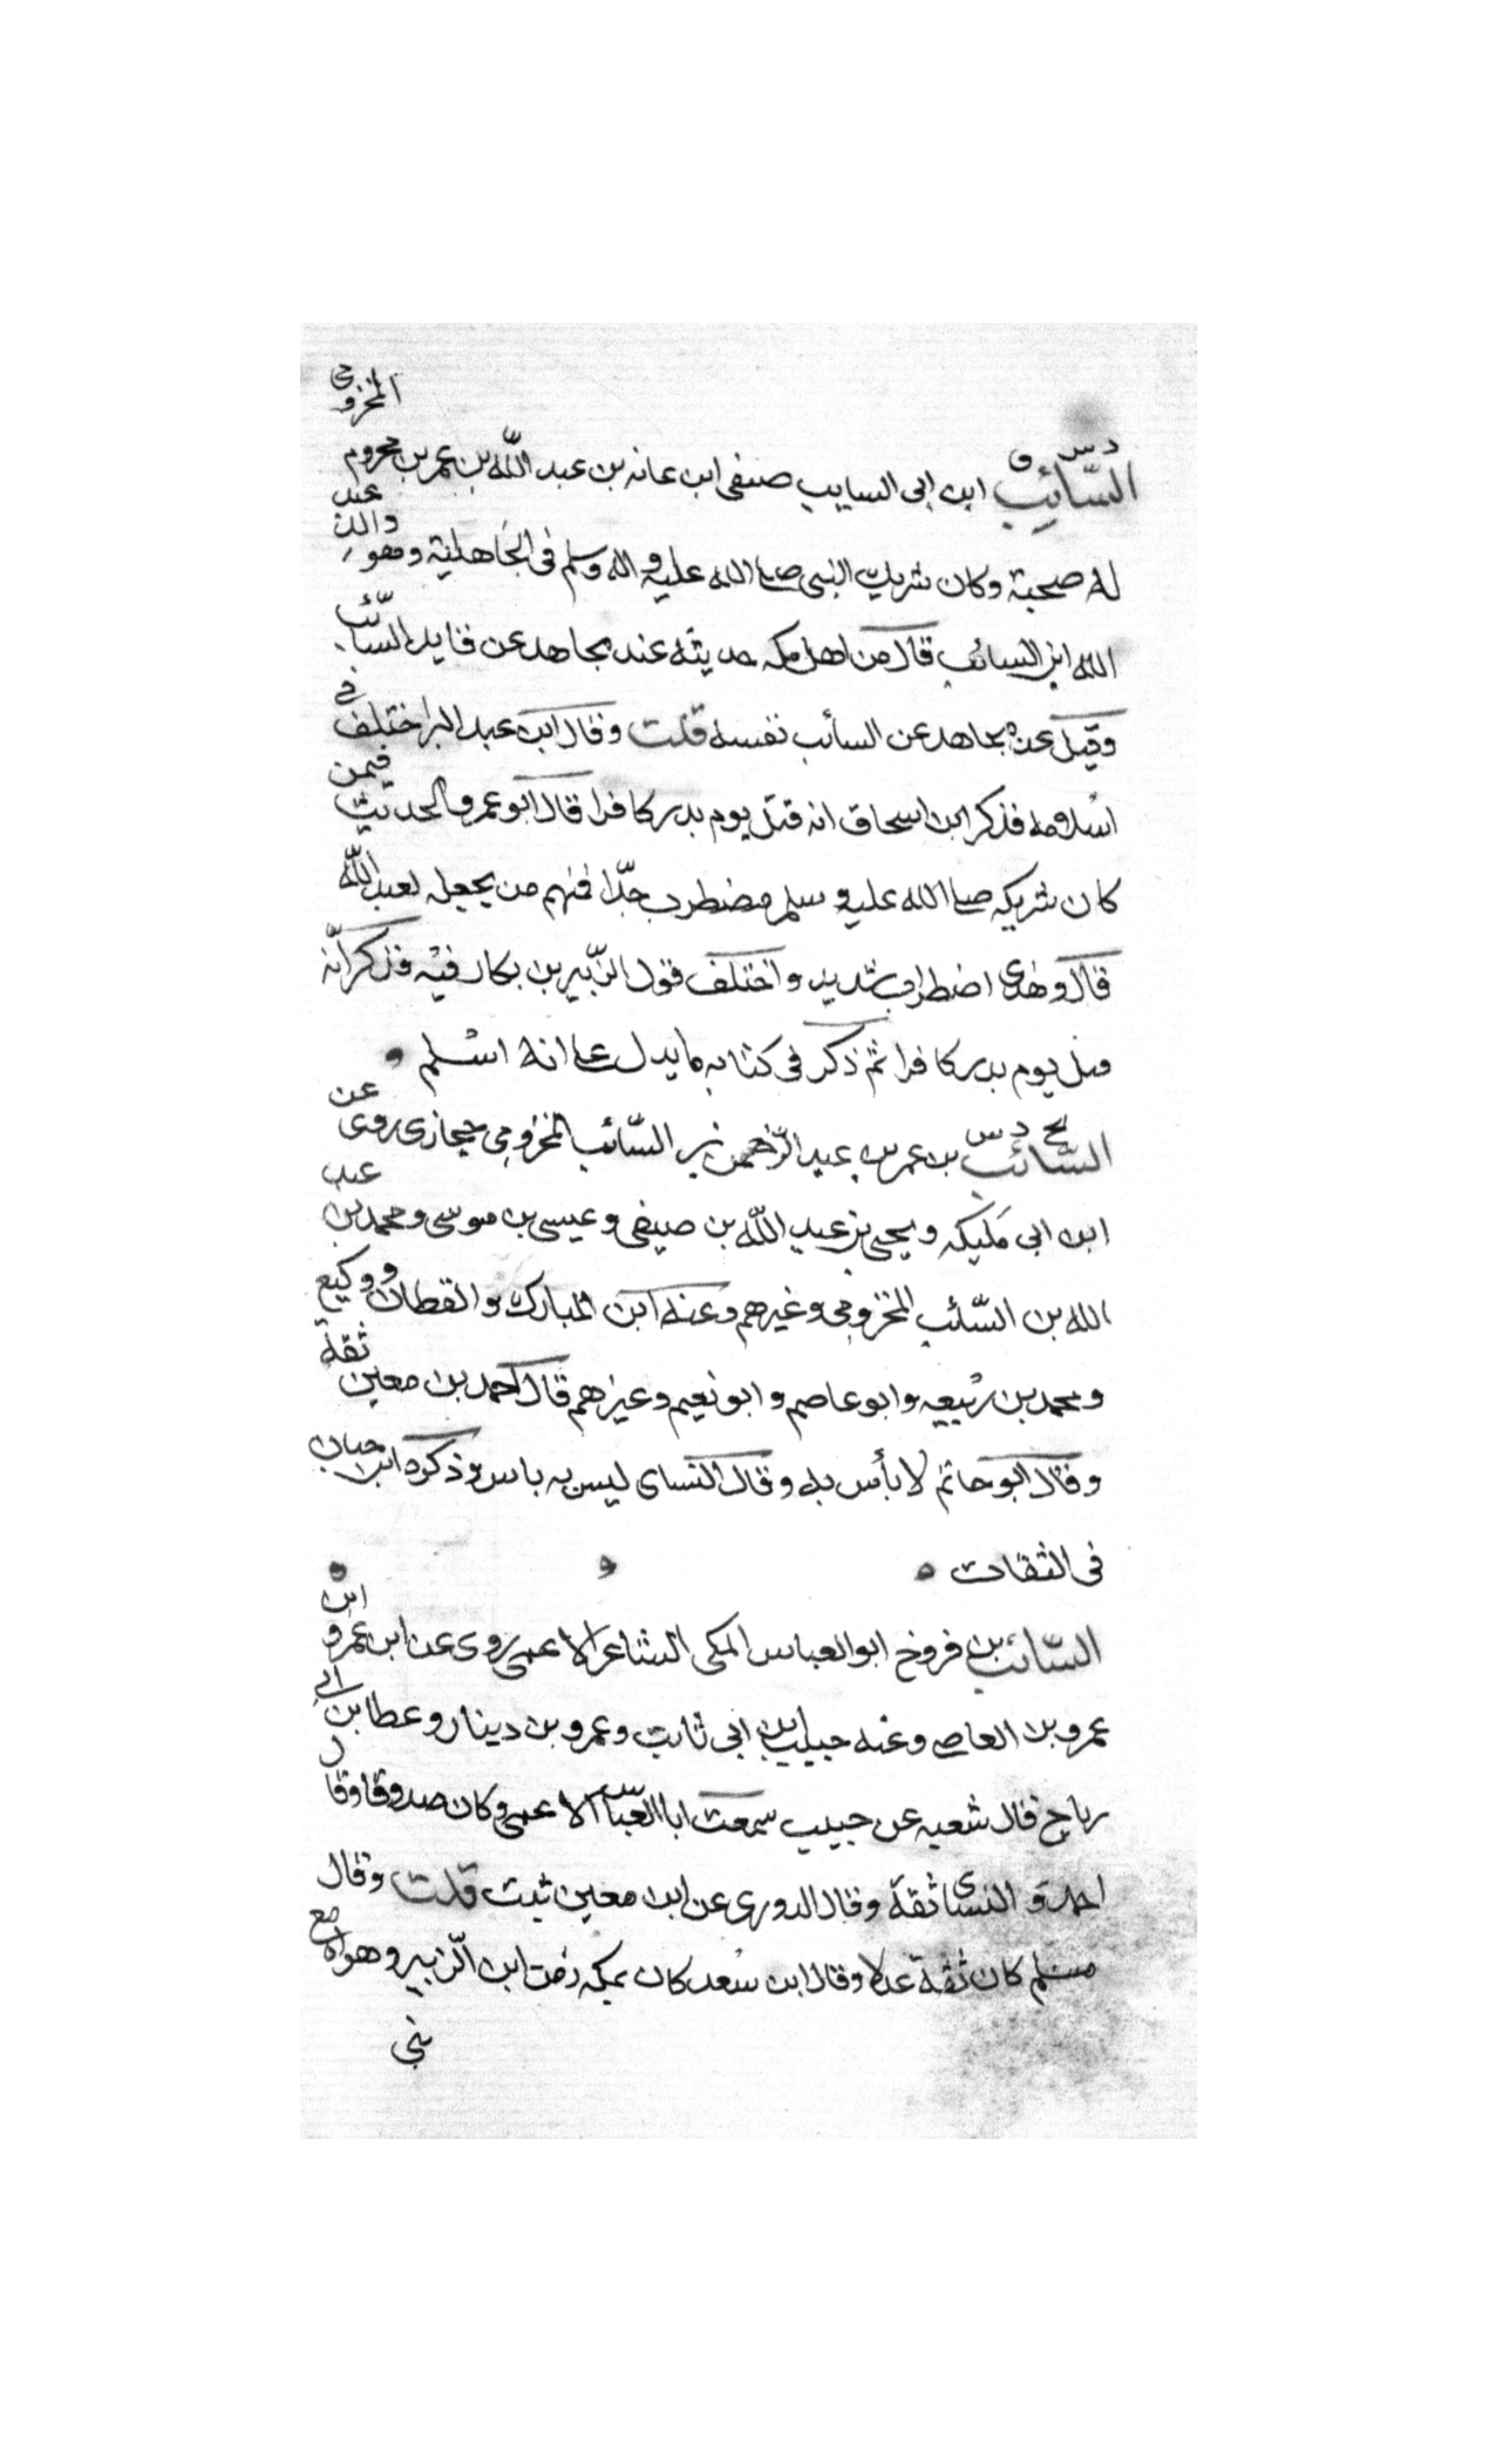 د س ق
السّائِب ابن ابى السايب صيفى ابن عائد بن عبد اللّه بن عمر بن مخزوم المخزومى
له صحبة وكان شريك النبى صلى الله عليه واله وسلم فى الجاهلية وهو والد عبد
الله ابن السائب قال من اهل مكه حديثه عند مجاهد عن قايد السّائب
وقيل عن مجاهد عن السائب نفسه قلت وقال ابن عبد البر اختلف فى
اسلامه فذكر ابن اسحاق انه قتل يوم بدر كافرا قال ابو عمر والحديث فيمن
كان شريكه صلى الله عليه وسلم مضطرب جدّا فمنهم من يجعله لعبد اللّه
قال وهذى اضطراب شديد واختلف قول الزّبير بن بكار فيه فذكر انّه
قتل يوم بدر كافرا ثم ذكر فى كتابه ما يدل على انه اسلم
بخ د س
السّائب بن عمر بن عبد الرّحمن بن السّائب المخزومى حجازى روى عن
ابن ابى مليكه ويحيى بن عبد اللّه بن صيفى وعيسى بن موسى ومحمد بن عبد
الله بن السّائب المخزومى وغيرهم وعنه ابن المبارك والقطان ووكيع
ومحمد بن ربيعه وابو عاصم وابو نعيم وغيرهم قال احمد بن معين ثقة
وقال ابو حاتم لا بأس به وقال النساى ليس به باس وذكره ابن حبان
فى الثقات
السّائب بن فروخ ابو العباس المكى الشاعر الاعمى روى عن ابن عمرو ابن
عمرو بن العاص وعنه حبيب بن ابى ثابت وعمرو بن دينار وعطا بن ابى
رباح قال شعبه عن حبيب سمعت ابا العبّاس الاعمى وكان صدوقا وقال
احمد و النساى ثقة وقال الدورى عن ابن معين ثبت قلت وقال
مسلم كان ثقة عدلا وقال ابن سعد كان بمكه زمن ابن الزّبير وهواه مع
بنى